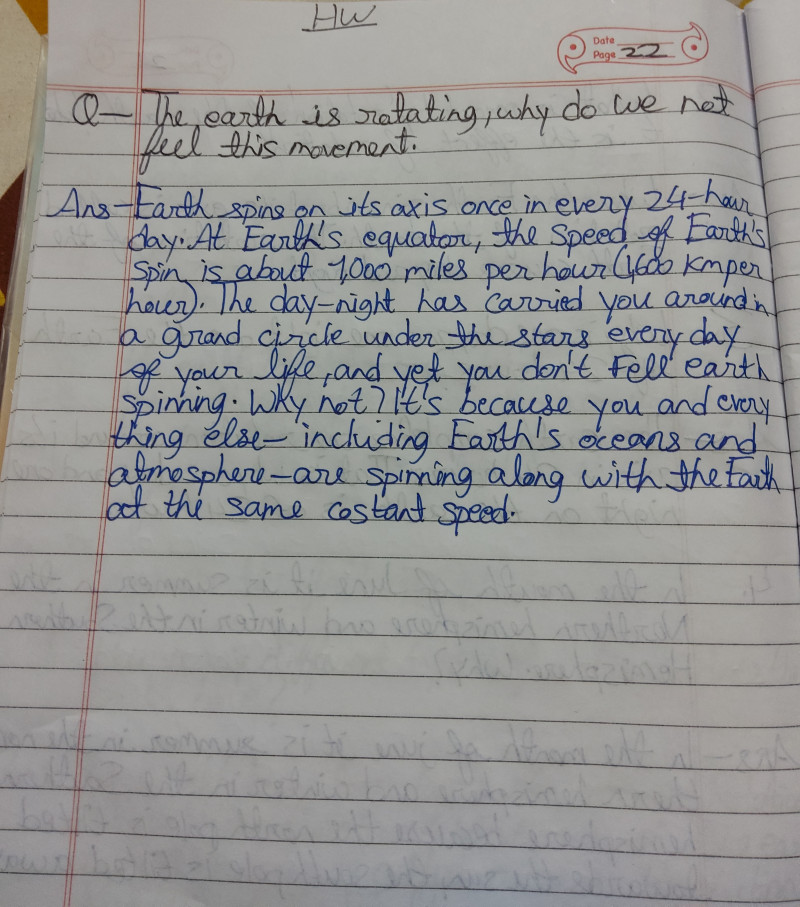 HW
Date
Page 22
Q- The earth is rotating, why do we not
feel this movement.
Ans-Earth spins on its axis once in every 24-hour
day. At Earth's equator, the speed of Earth's
spin is about 1,000 miles per hour (1,600 Km per
hour). The day-night has carried you around in
a grand circle under the stars every day
of your life, and yet you don't Fell earth
spinning. Why not? It's because you and every
thing else- including Earth's oceans and
atmosphere-are spinning along with the Earth
at the same costant speed.